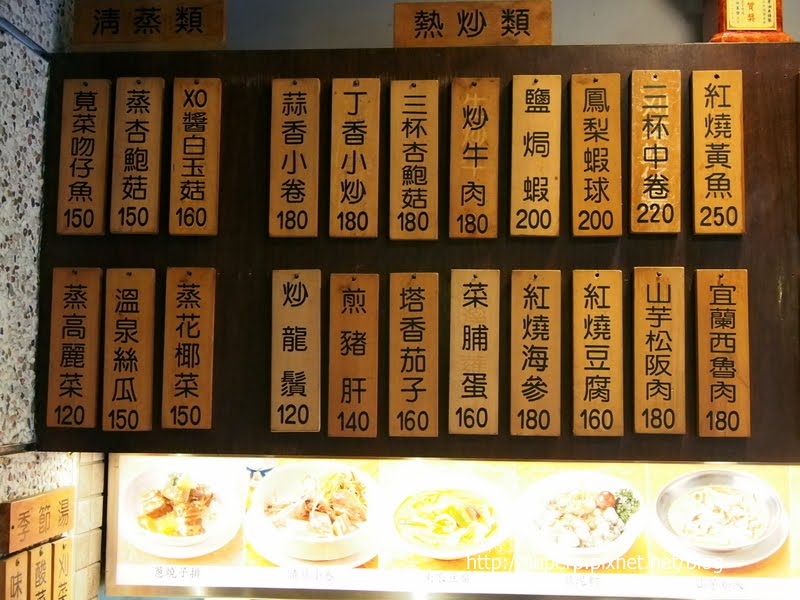 清蒸類
熱炒類
莧菜吻仔魚 150
蒸杏鮑菇 150
XO醬白玉菇 160
蒜香小卷 180
丁香小炒 180
三杯杏鮑菇 180
炒牛肉 180
鹽焗蝦 200
鳳梨蝦球 200
三杯中卷 220
紅燒黃魚 250
蒸高麗菜 120
溫泉絲瓜 150
蒸花椰菜 150
炒龍鬚 120
煎豬肝 140
塔香茄子 160
菜脯蛋 160
紅燒海參 180
紅燒豆腐 160
山芋松阪肉 180
宜蘭西魯肉 180
季節湯
蔥燒子排